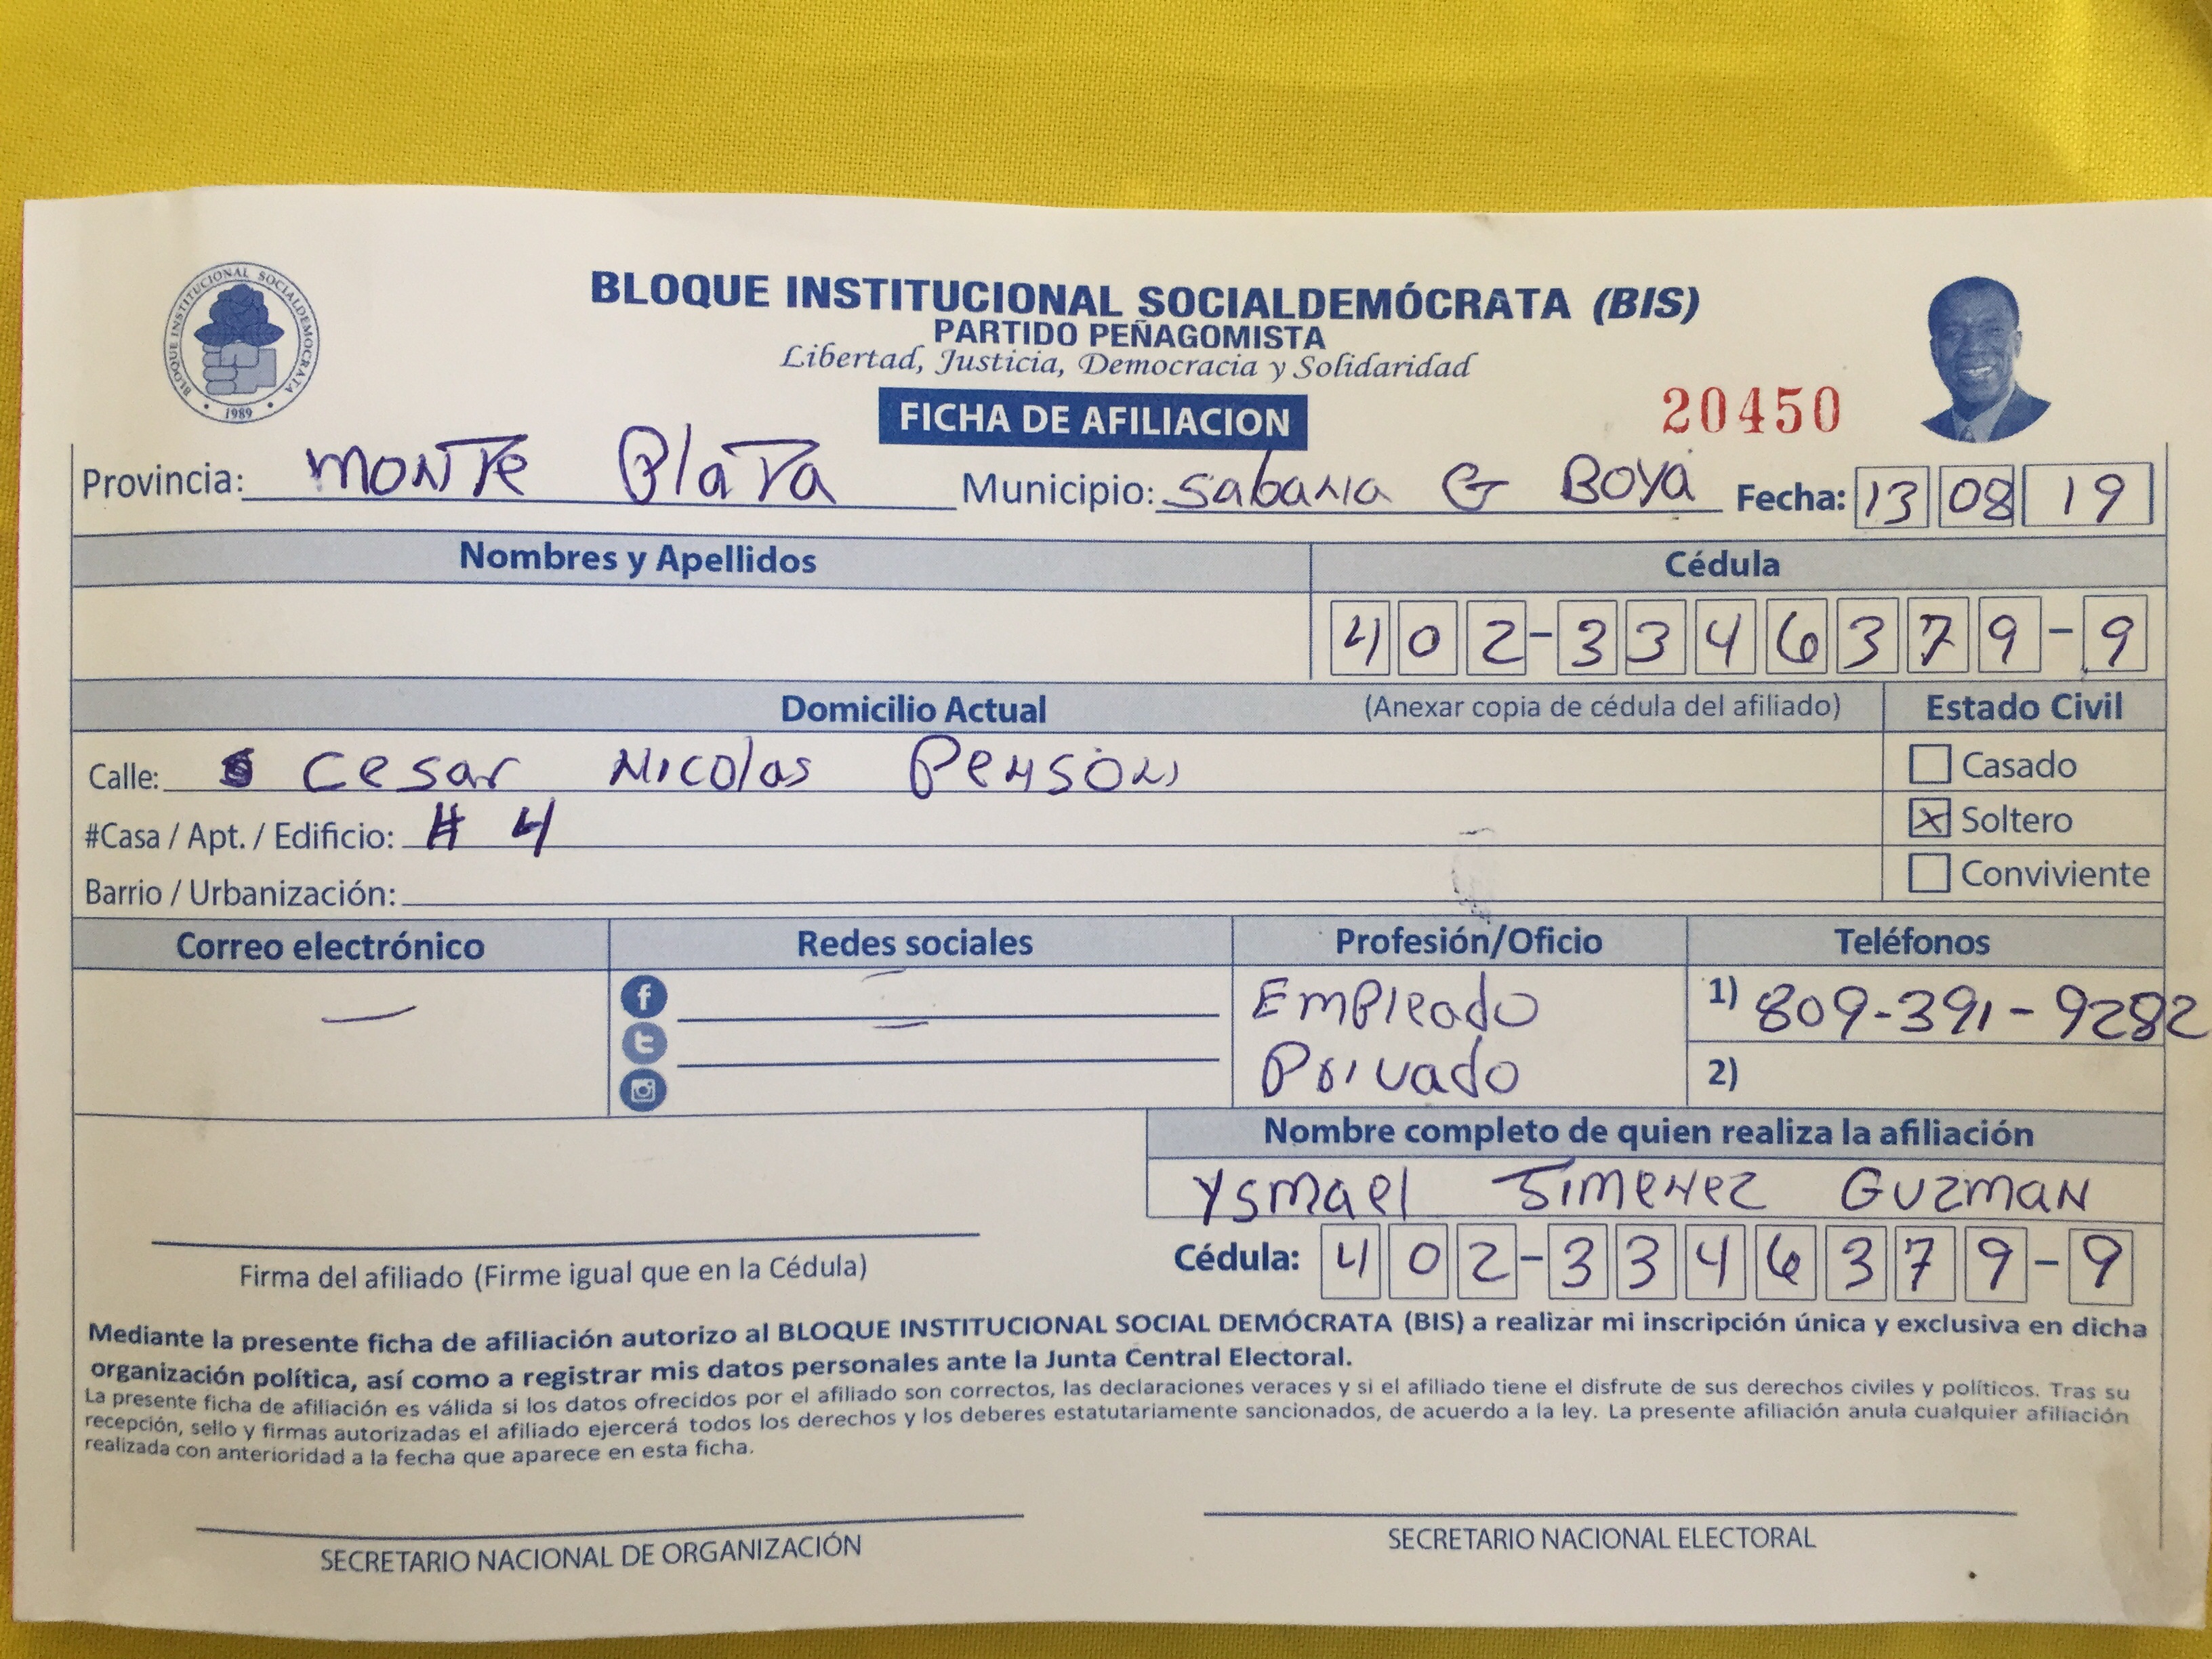 BLOQUE INSTITUCIONAL SOCIALDEMOCRATA
1989
BLOQUE INSTITUCIONAL SOCIALDEMÓCRATA (BIS)
PARTIDO PEÑAGOMISTA
Libertad, Justicia, Democracia y Solidaridad
FICHA DE AFILIACION
20450
Provincia: MONTE PlaTa Municipio: Sabana G Boya Fecha: 13 08 19
Nombres y Apellidos Cédula
402-3346379-9
Domicilio Actual (Anexar copia de cédula del afiliado) Estado Civil
Calle: Cesar Nicolas Penson
Casado
#Casa / Apt. / Edificio: # 4
X Soltero
Barrio / Urbanización:
Conviviente
Correo electrónico Redes sociales Profesión/Oficio Teléfonos
— f — Empleado 1) 809-391-9282
t — Privado 2)
Nombre completo de quien realiza la afiliación
Ysmael Jimenez Guzman
Cédula: 402-3346379-9
Firma del afiliado (Firme igual que en la Cédula)
Mediante la presente ficha de afiliación autorizo al BLOQUE INSTITUCIONAL SOCIAL DEMÓCRATA (BIS) a realizar mi inscripción única y exclusiva en dicha
organización política, así como a registrar mis datos personales ante la Junta Central Electoral.
La presente ficha de afiliación es válida si los datos ofrecidos por el afiliado son correctos, las declaraciones veraces y si el afiliado tiene el disfrute de sus derechos civiles y políticos. Tras su
recepción, sello y firmas autorizadas el afiliado ejercerá todos los derechos y los deberes estatutariamente sancionados, de acuerdo a la ley. La presente afiliación anula cualquier afiliación
realizada con anterioridad a la fecha que aparece en esta ficha.
SECRETARIO NACIONAL DE ORGANIZACIÓN SECRETARIO NACIONAL ELECTORAL